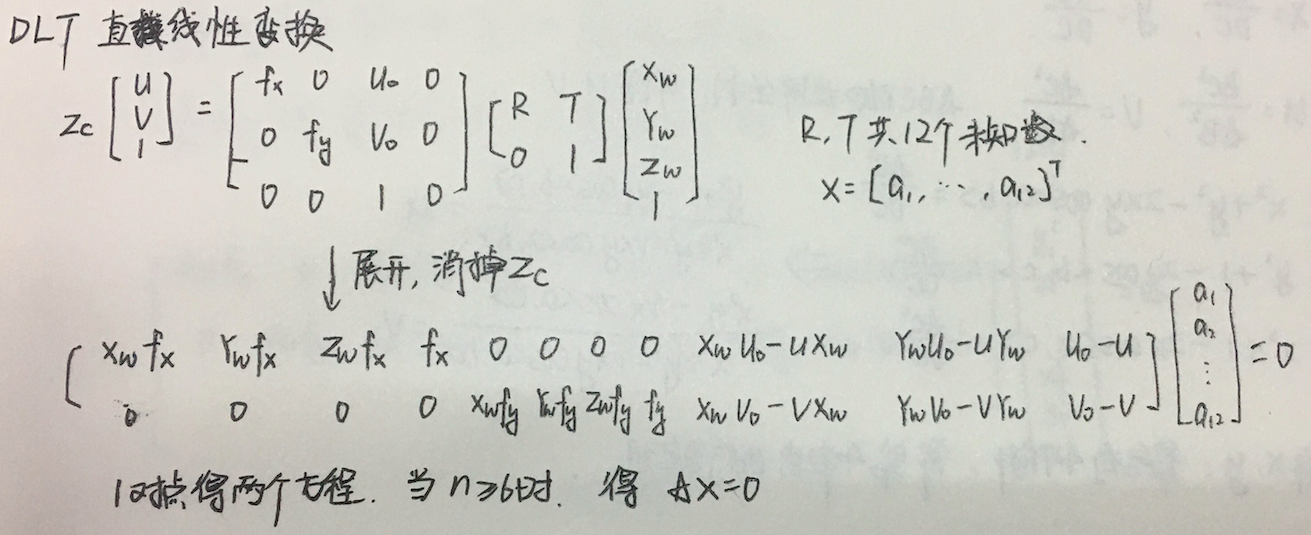 DLT 直接线性变换
Zc [u v 1] = [fx 0 u₀ 0; 0 fy v₀ 0; 0 0 1 0] [R T; 0 1] [Xw Yw Zw 1]
R,T 共12个未知数.
X = [a₁, ⋯, a₁₂]ᵀ
↓ 展开, 消掉Zc
[Xwfx Ywfx Zwfx fx 0 0 0 0 Xwu₀-uXw Ywu₀-uYw u₀-u; 0 0 0 0 Xwfy Ywfy Zwfy fy Xwv₀-vXw Ywv₀-vYw v₀-v] [a₁ a₂ ⋮ a₁₂] = 0
1对点得两个方程. 当 n≥6时. 得 AX=0